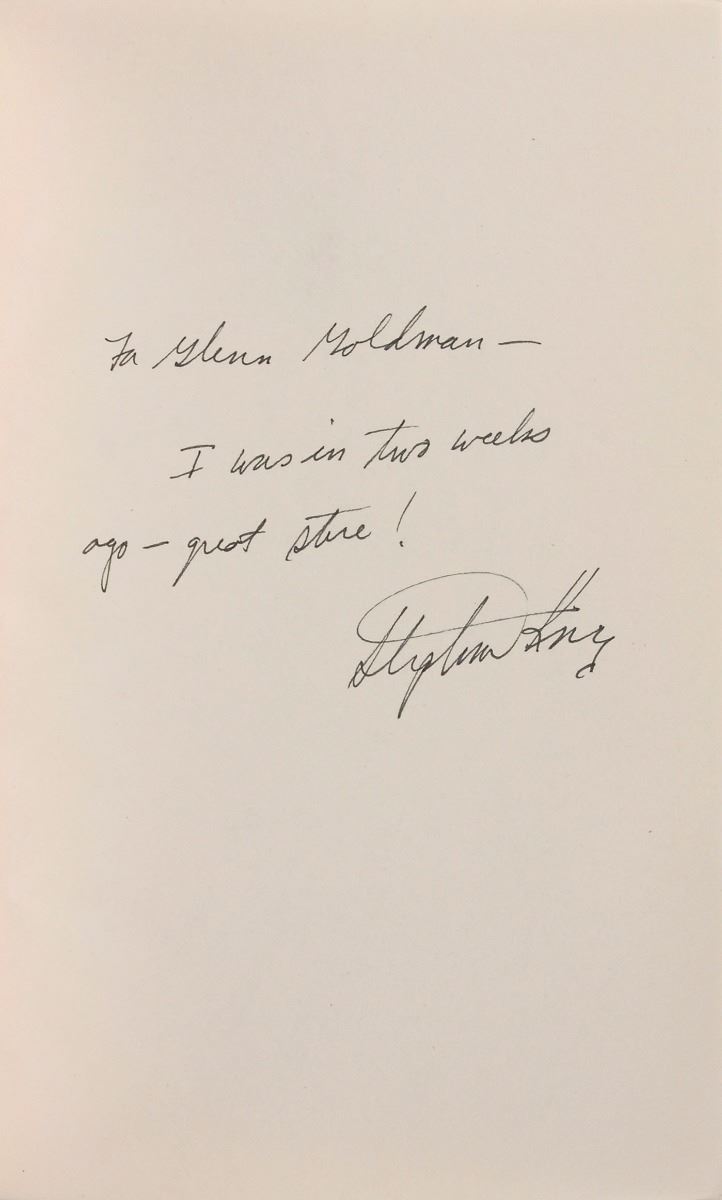 For Glenn Goldman —
I was in two weeks
ago — great store!
Stephen King